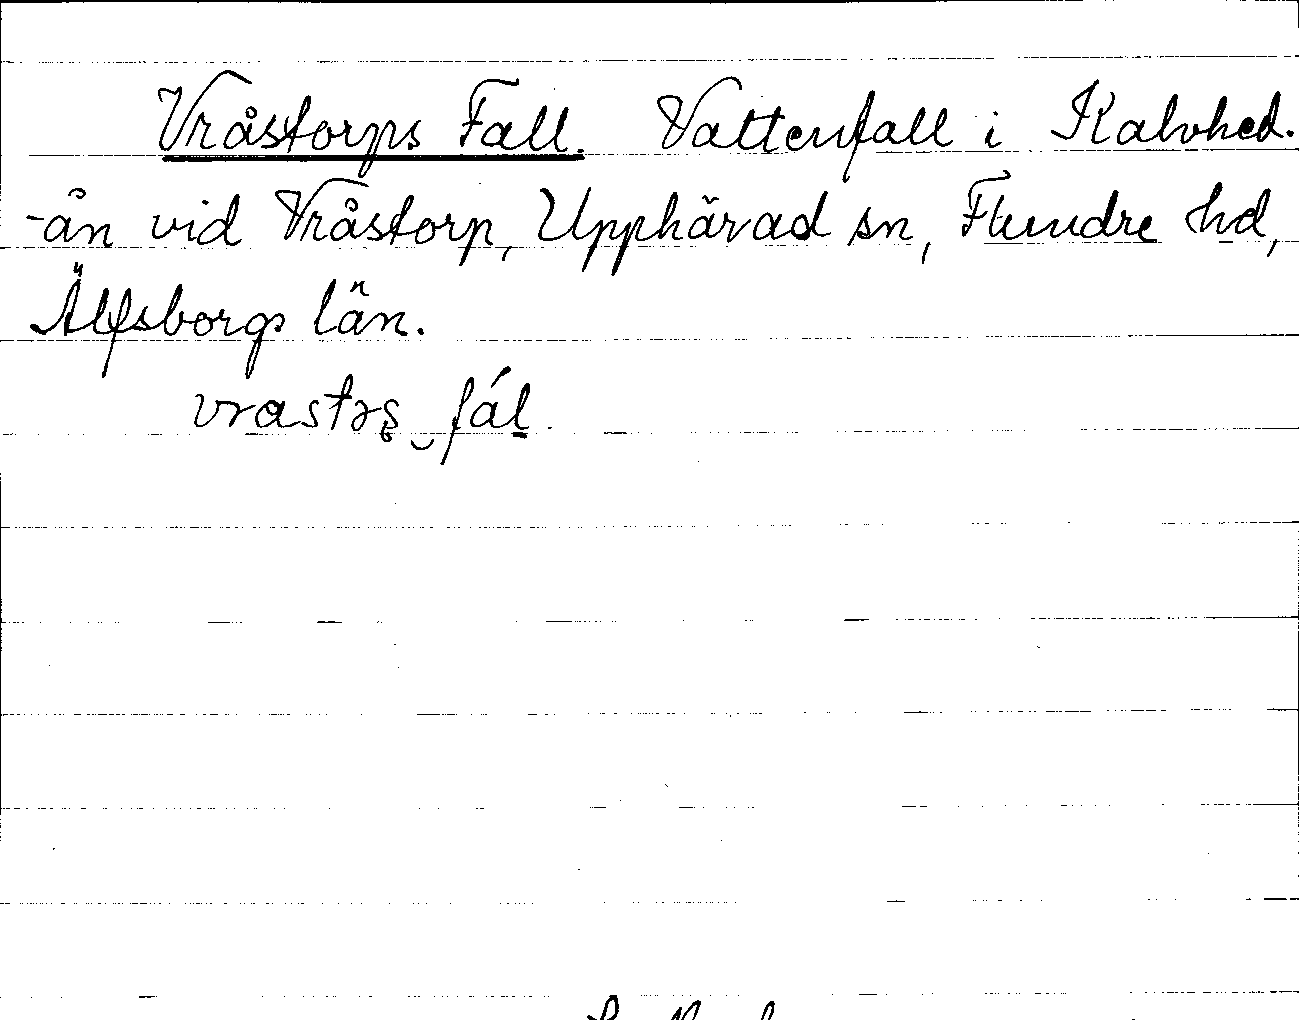 Vråstorps Fall. Vattenfall i Kalvhed-
-ån vid Vråstorp, Upphärad sn, Flundre hd,
Älfsborgs län.
vrastəʂ‿fál̲.